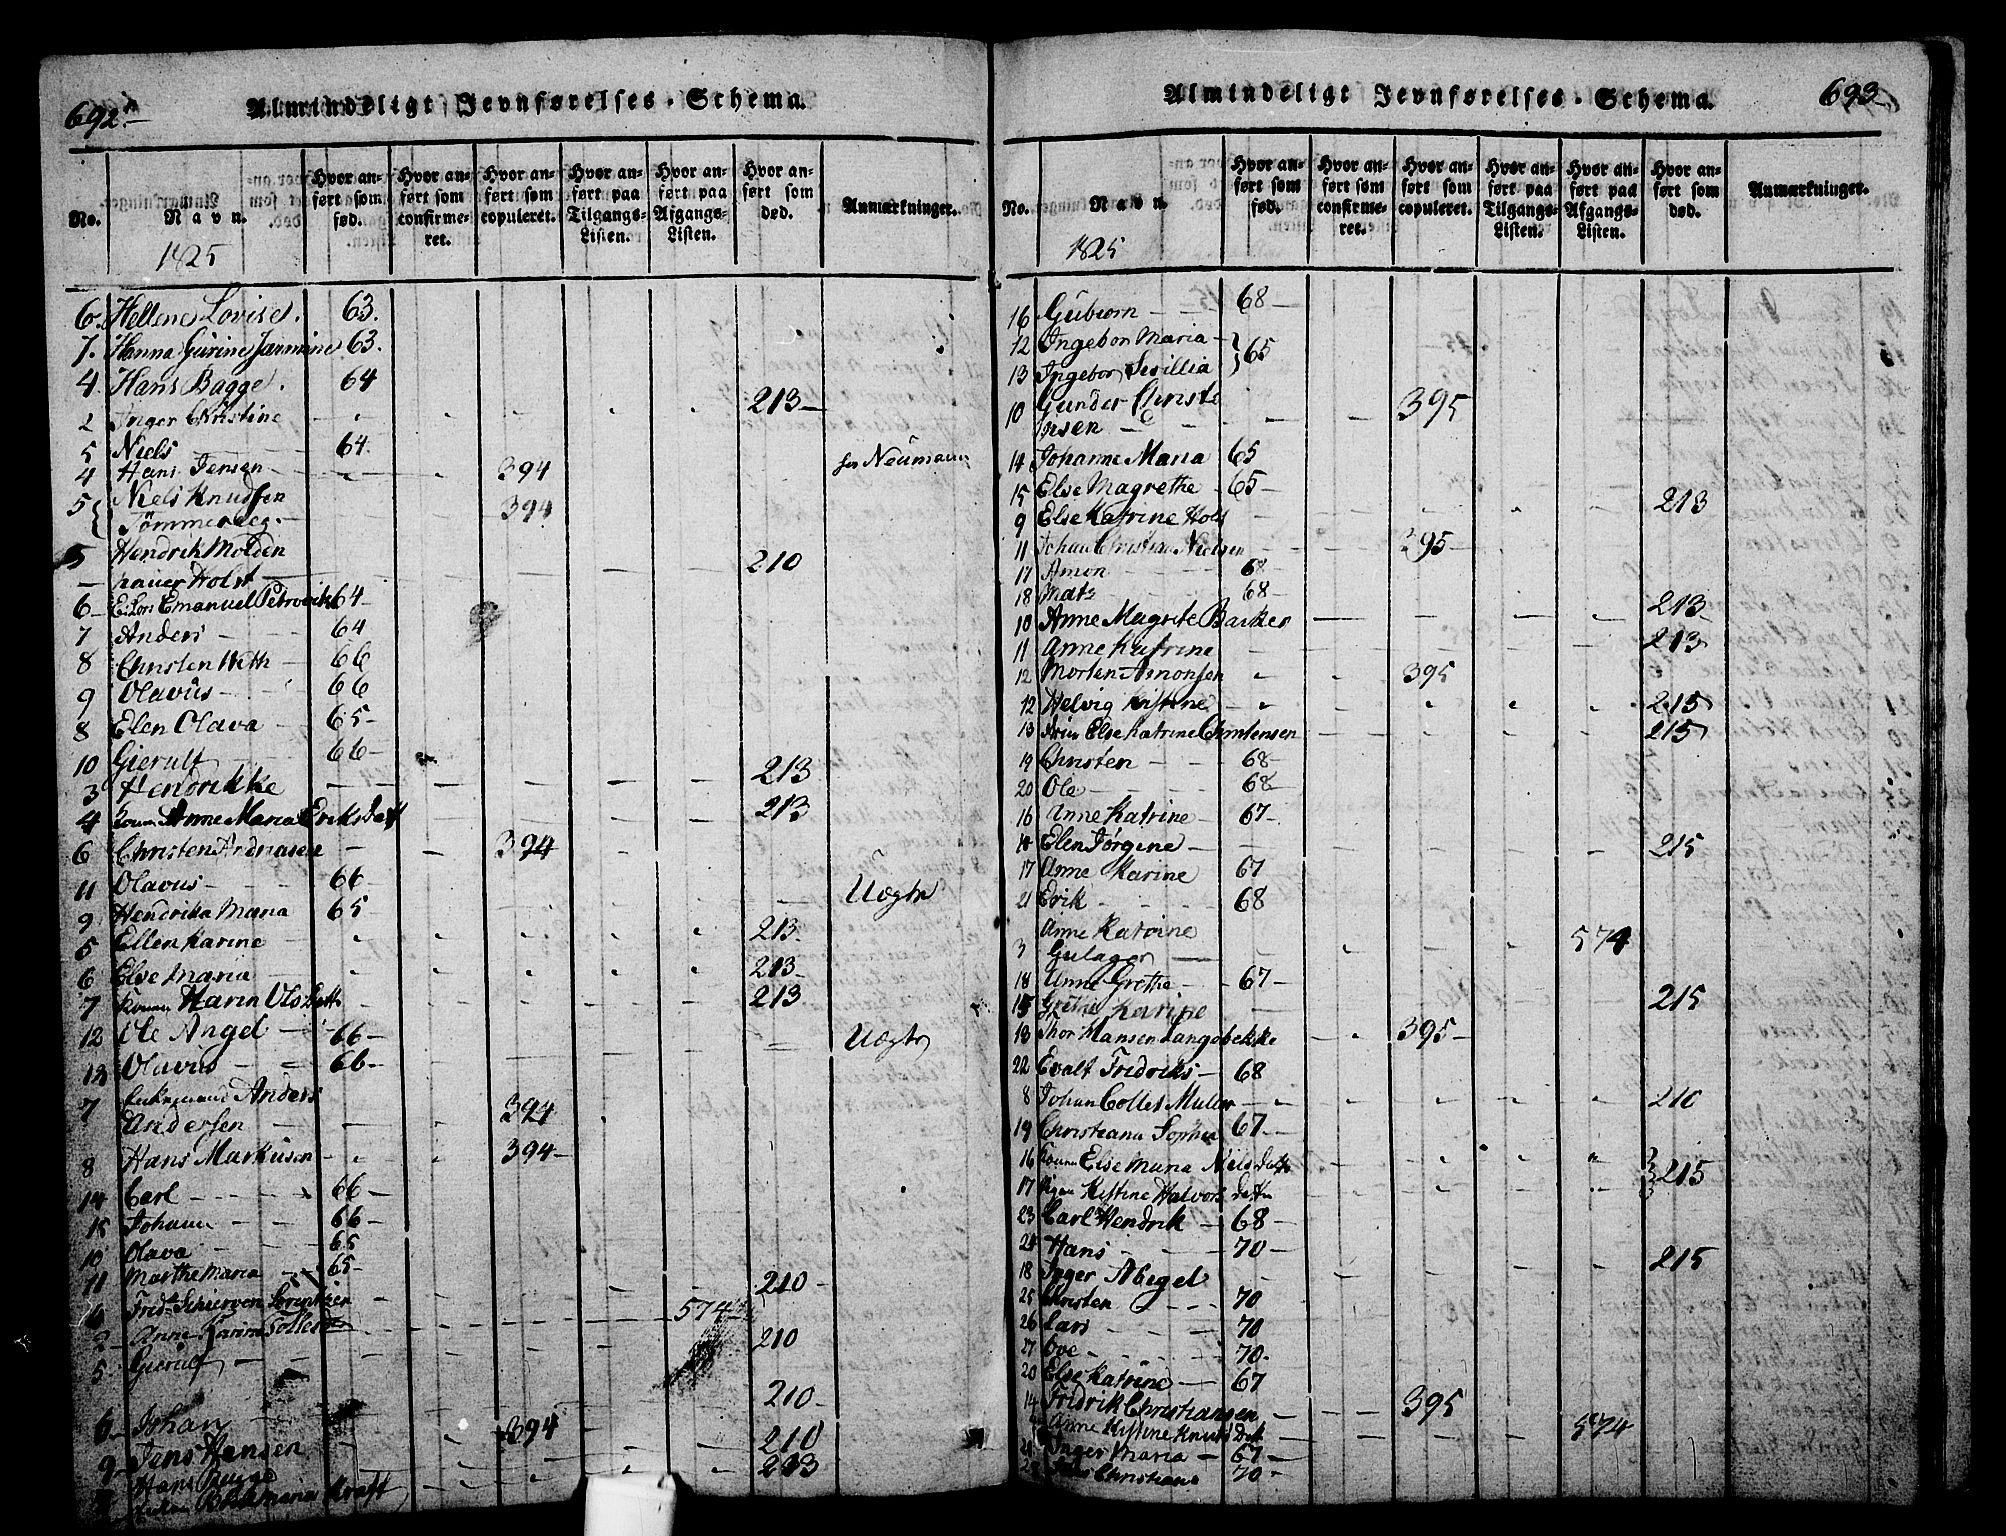 692.
Almindeligt Jevnførelses-Schema.
No. Navn. Hvor anført som fød. Hvor anført som confirmeret. Hvor anført som copuleret. Hvor anført paa Tilgangs-Listen. Hvor anført paa Afgangs-Listen. Hvor anført som død. Anmærkninger.
1825
6. Hellene Lovise. 63.
7. Hanna Gurine Jarmine 63.
4. Hans Bagge. 64
2 Inger Christine 213
5 Niels 64.
4 Hans Jensen 394 Neumann
5 Niels Knudsen
Tømmerdeg. 394
5 Hendrik Molden
hauer Holst 210
6 Emanuel 64
7 Anders 64
8 Christen With 66
9 Olavus 66
8 Elen Olava 65
10 Gierulf 66
3 Hendrikke 213
4 Anne Maria Eriksdatt 213
6 Christen 394
11 Olavus 66 Uægte
9 Hendrika Maria 65
5 Ellen Karine 213
6 Else Maria 213
7 Karin Olsdatt 213
12 Ole Angel 66 Uægte
13 Olavus 66
7 Anders
Andersen 394
8 Hans Markusen 394
14 Carl 66
15 Johan 66
10 Olava 65
11 Marthe Maria 65
210
574
2 Anne Karine 210
5 Gierulf
210
6 Johan 394 210
9 Jens Hansen 213
Hans Bagge
Maria Kraft
693
Almindeligt Jevnførelses-Schema.
No. Navn. Hvor anført som fød. Hvor anført som confirmeret. Hvor anført som copuleret. Hvor anført paa Tilgangs-Listen. Hvor anført paa Afgangs-Listen. Hvor anført som død. Anmærkninger.
1825
16 Gubiorn 68
12 Ingebor Maria
13 Ingebor Sesillia 65
10 Gunder Christ
ensen 395
14 Johanne Maria 65
15 Else Magrethe 65
9 Else Katrine Hols 213
11 Johan Christian Nielsen 395
17 Amon 68
18 Mats 68
10 Anne Magrete Barker 213
11 Anne Katrine 213
12 Morten Amonsen 395
12 Helvig Kistine 215
13 Else Katrine Christensen 215
19 Christen 68
20 Ole 68
16 Anne Katrine 67
14 Elen Jørgine 215
17 Anne Karine 67
21 Erik 68
Anne Katrine
3 Gulager 574
18 Anne Grethe 67
15 Grethe Karine 215
13 Thor Hansen Langebekke 395
22 Evalt Fridriks 68
8 Johan Colles Muller 210
19 Christiana Sophia 67
16 Else Maria Nielsdatt
17 Kistine Halvorsdatter 215
23 Carl Hendrik 68
24 Hans 70
18 Inger Abigel 215
25 Christen 70
26 Lars 70
27 Ove 70
20 Else Katrine 67
14 Fridrik Christiansen 395
Anne Kistine Knuts Dat 574
21 Inger Maria 67
Christians 70